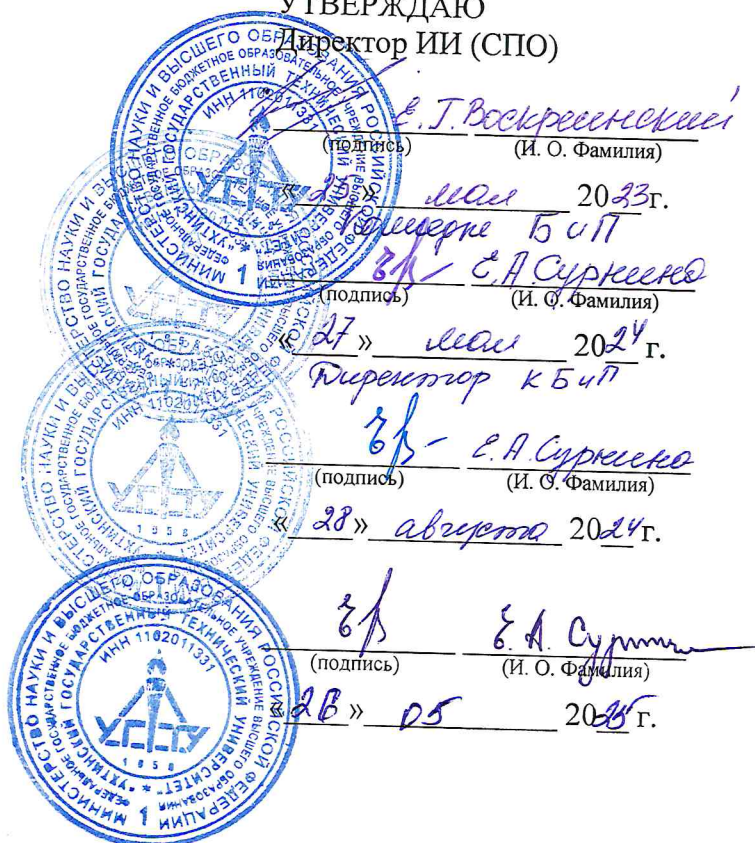 УТВЕРЖДАЮ
Директор ИИ (СПО)
Е. Г. Воскресенский
(подпись) (И. О. Фамилия)
мая 2023г.
БиП
Е.А. Суркина
(подпись) (И. О. Фамилия)
«27» мая 2024 г.
Директор КБиП
Е.А. Суркина
(подпись) (И. О. Фамилия)
«28» августа 2024г.
Е.А.
(подпись) (И. О. Фамилия)
«26» 05 2025 г.
МИНИСТЕРСТВО НАУКИ И ВЫСШЕГО ОБРАЗОВАНИЯ РОССИЙСКОЙ ФЕДЕРАЦИИ
ФЕДЕРАЛЬНОЕ ГОСУДАРСТВЕННОЕ БЮДЖЕТНОЕ ОБРАЗОВАТЕЛЬНОЕ УЧРЕЖДЕНИЕ ВЫСШЕГО ОБРАЗОВАНИЯ
"УХТИНСКИЙ ГОСУДАРСТВЕННЫЙ ТЕХНИЧЕСКИЙ УНИВЕРСИТЕТ"
ИНН 1102011331
УГТУ
1958
1